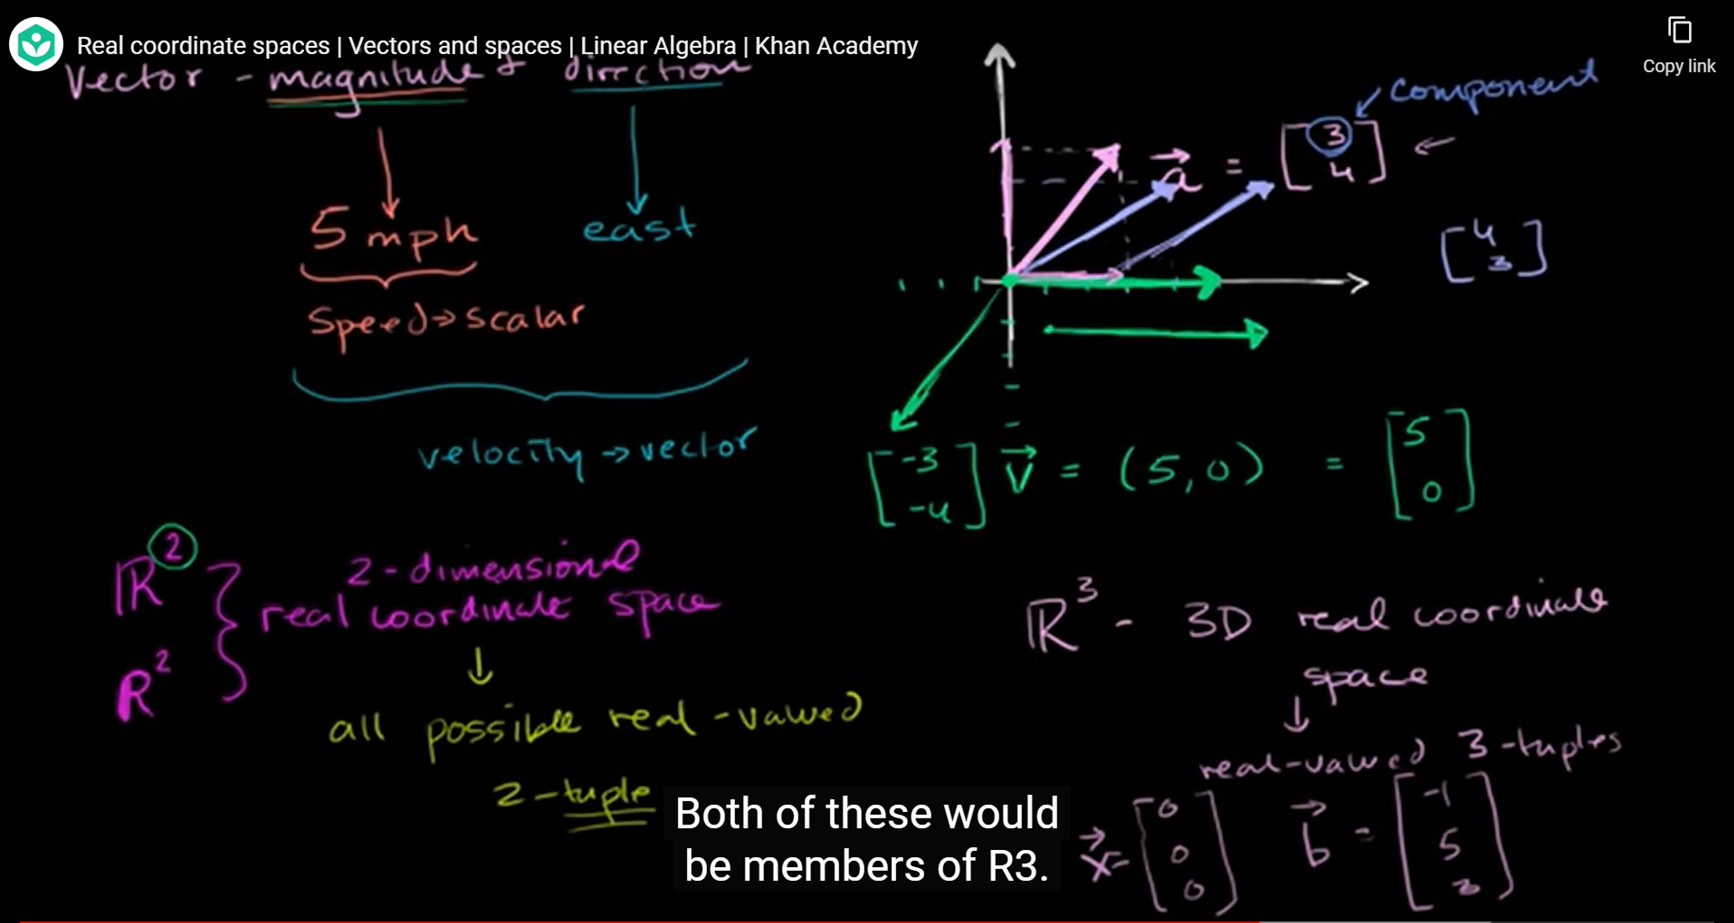 Real coordinate spaces | Vectors and spaces | Linear Algebra | Khan Academy
Copy link
Vector - magnitude & direction
5 mph
east
speed → scalar
velocity → vector
component
a = [3
4]
[4
3]
[-3
-4]
V = (5,0) = [5
0]
R2 2-dimensional
real coordinate space
R2
↓
all possible real-valued
2-tuple
R3 - 3D real coordinate
space
↓
real-valued 3-tuples
x = [0
0
0]
b = [-1
5
3]
Both of these would
be members of R3.